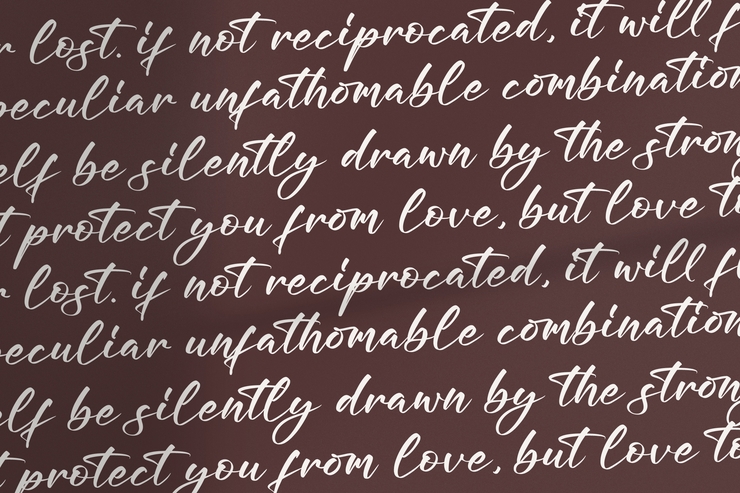 r lost. if not reciprocated, it will f
peculiar unfathomable combination
elf be silently drawn by the strong
t protect you from love, but love to
r lost. if not reciprocated, it will fl
peculiar unfathomable combination
elf be silently drawn by the strong
t protect you from love, but love to